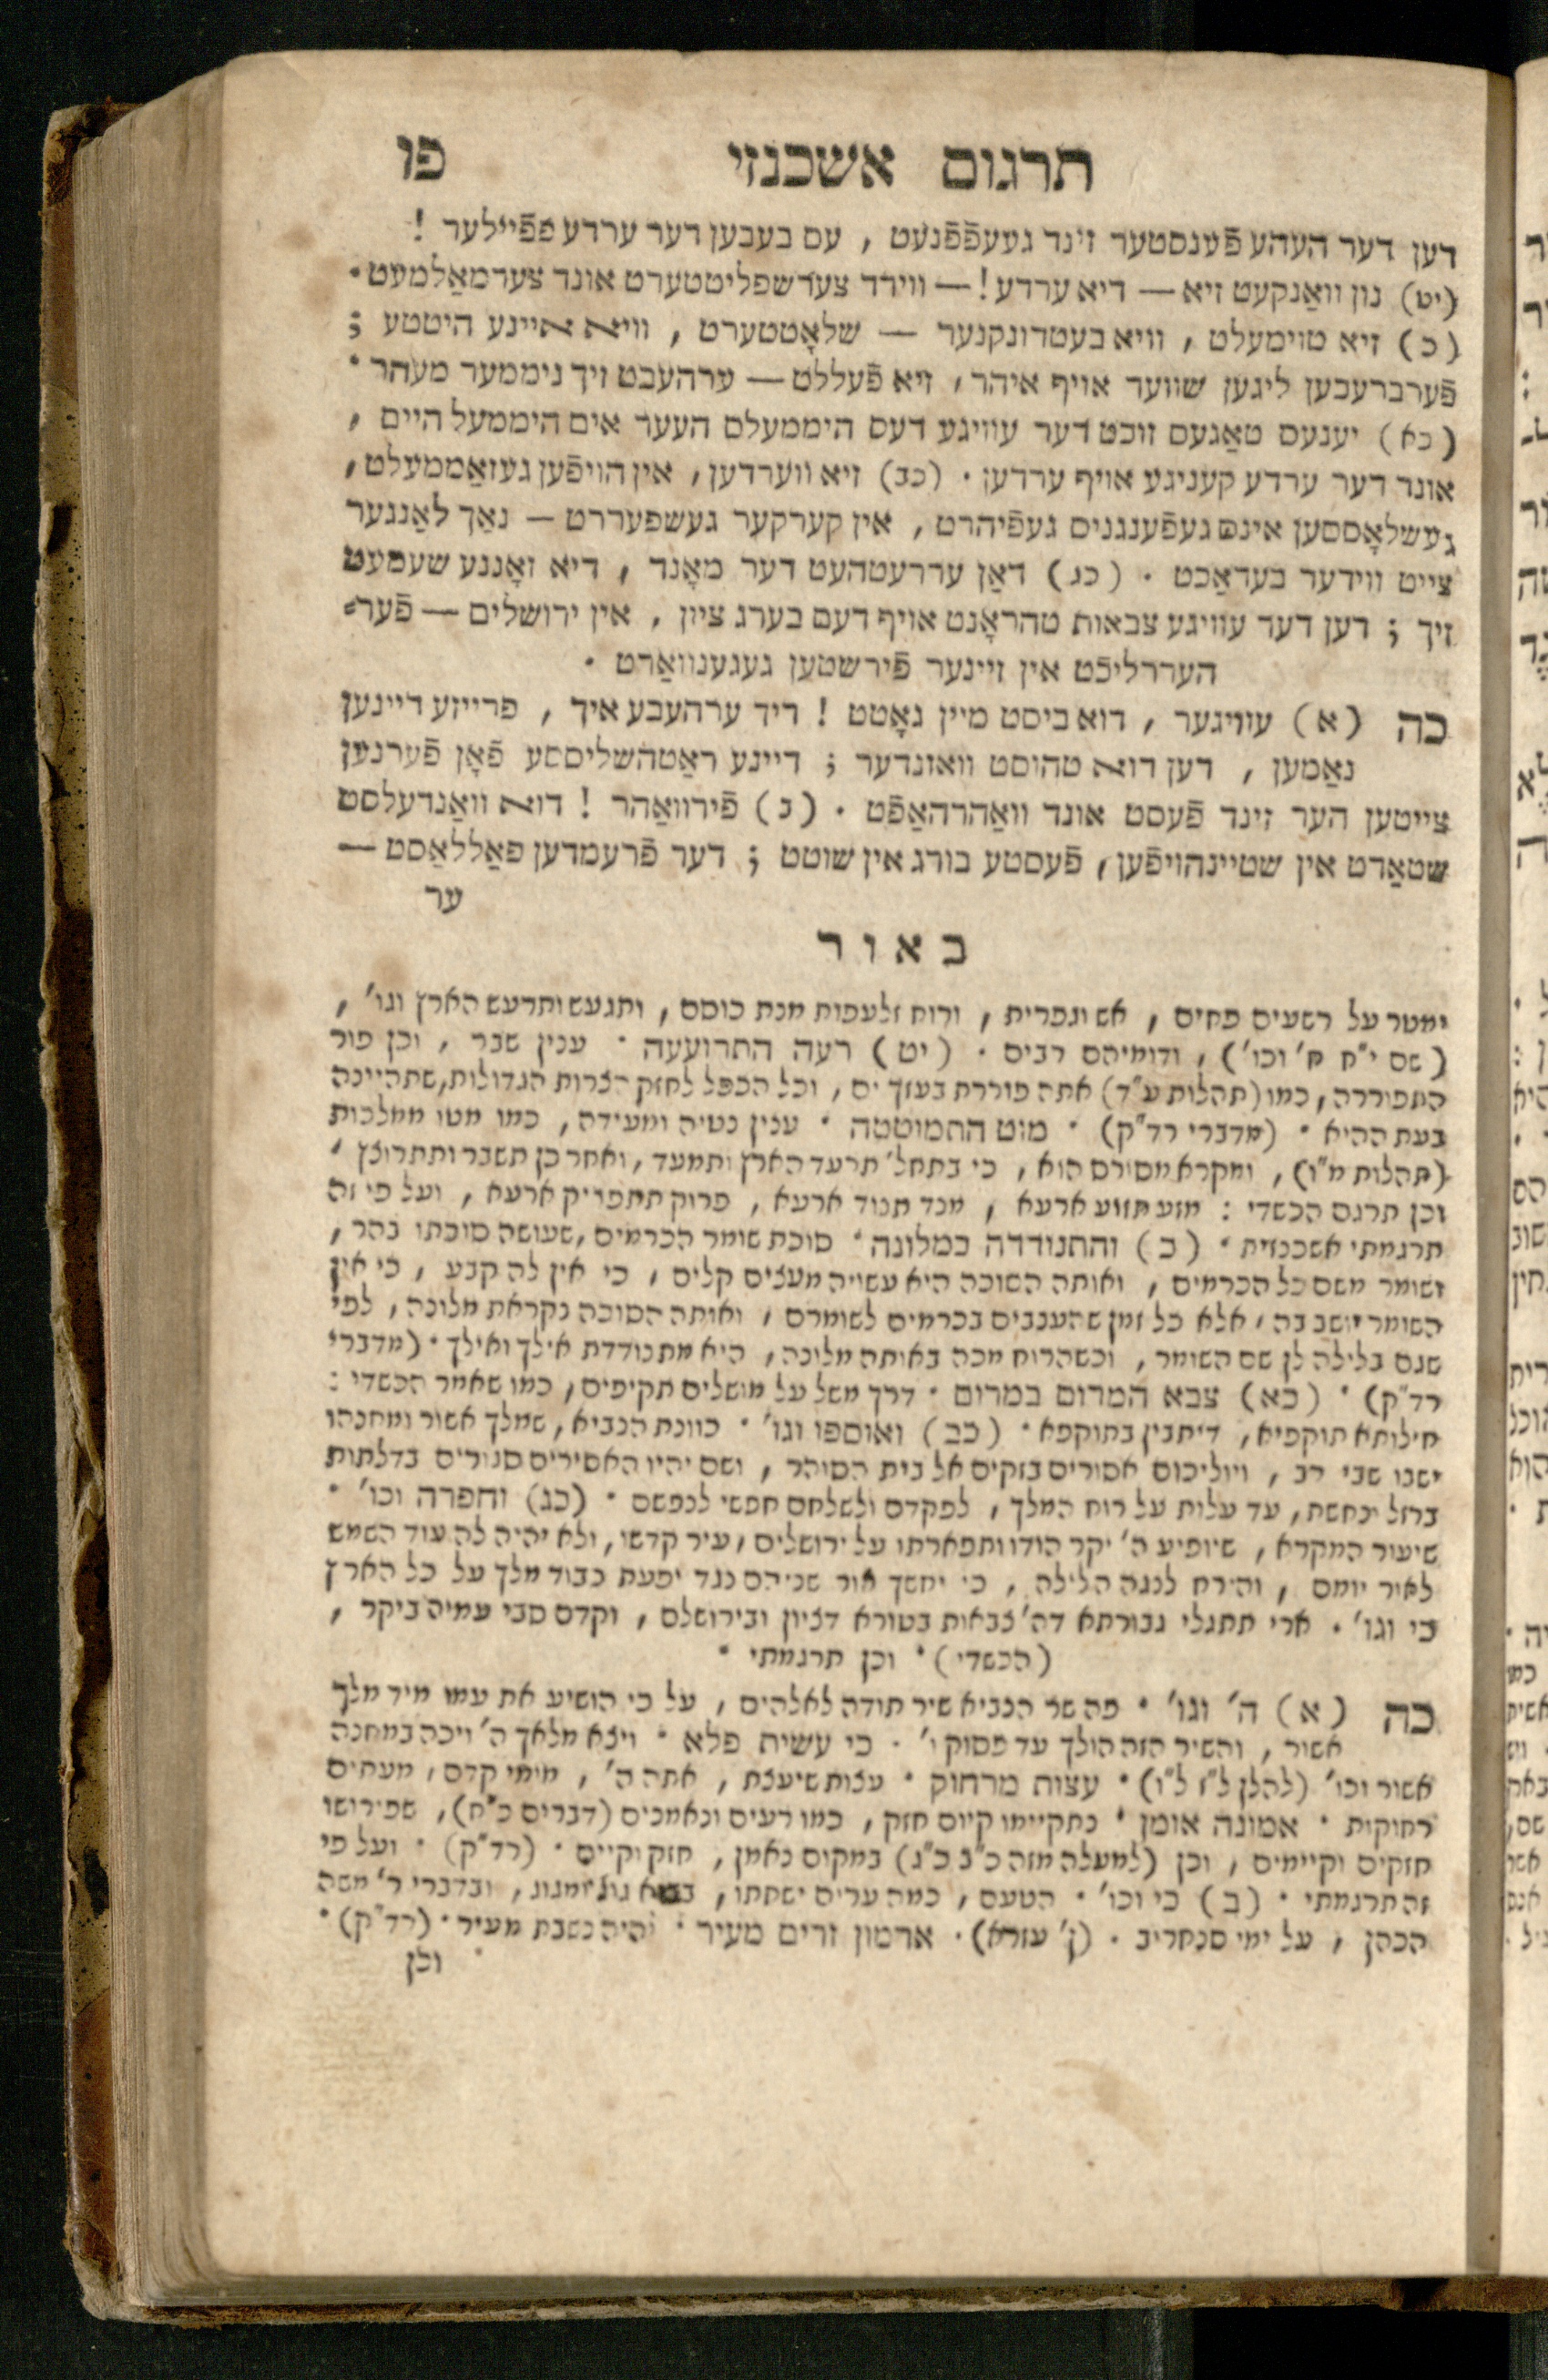 תרגום אשכנזי פו
דען דער העהע פֿענסטער זינד געעפֿפֿנעט , עס בעבען דער ערדע פפֿיילער !
(יט) נון וואַנקעט זיא — דיא ערדע ! — ווירד צערשפליטטערט אונד צערמאַלמעט .
(כ) זיא טוימעלט , וויא בעטרונקנער — שלאָטטערט , וויא איינע היטטע ;
פֿערברעכען ליגען שווער אויף איהר , זיא פֿעללט — ערהעבט זיך ניממער מעהר .
(כא) יענעס טאַגעס זוכט דער עוויגע דעס היממעלס העער אים היממעל היים ,
אונד דער ערדע קעניגע אויף ערדען . (כב) זיא ווערדען , אין הויפֿען געזאַממעלט ,
געשלאָססען אינס געפֿענגניס געפֿיהרט , אין קערקער געשפעררט — נאַך לאַנגער
צייט ווידער בעדאַכט . (כג) דאַן עררעטהעט דער מאָנד , דיא זאָננע שעמעט
זיך ; דען דער עוויגע צבאות טהראָנט אויף דעם בערג ציון , אין ירושלים — פֿער=
העררליכט אין זיינער פֿירשטען געגענוואַרט .
כה (א) עוויגער , דוא ביסט מיין גאָטט ! דיך ערהעבע איך , פרייזע דיינען
נאַמען , דען דוא טהוסט וואונדער ; דיינע ראַטהשליססע פֿאָן פֿערנען
צייטען הער זינד פֿעסט אונד וואַהרהאַפֿט . (ב) פֿירוואַהר ! דוא וואַנדעלסט
שטאַדט אין שטיינהויפֿען , פֿעסטע בורג אין שוטט ; דער פֿרעמדען פאַללאַסט —
ער
באור
ימטר על רשעים פחים , אש וגפרית , ורוח זלעפות מנת כוסם , ותגעש ותרעש הארץ וגו' ,
(שם י"ח ח' וכו') , ודומיהם רבים . (יט) רעה התרועעה . ענין שבר , וכן פור
התפוררה , כמו (תהלות ע"ד) אתה פוררת בעזך ים , וכל הכפל לחזק הצרות הגדולות , שתהיינה
בעת ההיא . (מדברי רד"ק) . מוט התמוטטה . ענין נטיה ומעידה , כמו מטו ממלכות
(תהלות מ"ו) , ומקרא מסורס הוא , כי בתחל' תרעד הארץ ותמעד , ואחר כן תשבר ותתרוצץ ,
וכן תרגם הכשדי : מזע תזוע ארעא , מנד תנוד ארעא , פרוק תתפריק ארעא , ועל פי זה
תרגמתי אשכנזית . (כ) והתנודדה כמלונה . סוכת שומר הכרמים , שעושה סוכתו בהר ,
ושומר משם כל הכרמים , ואותה הסוכה היא עשויה מעצים קלים , כי אין לה קבע , כי אין
השומר יושב בה , אלא כל זמן שהענבים בכרמים לשומרם , ואותה הסוכה נקראת מלונה , לפי
שגם בלילה לן שם השומר , וכשהרוח מכה באותה מלונה , היא מתנודדת אילך ואילך . (מדברי
רד"ק) . (כא) צבא המרום במרום . דרך משל על מושלים תקיפים , כמו שאמר הכשדי :
חילותא תוקפיא , דיתבין בתוקפא . (כב) ואוספו וגו' . כוונת הנביא , שמלך אשור ומחנהו
ישבו שבי רב , ויוליכום אסורים בזקים אל בית הסוהר , ושם יהיו האסירים סגורים בדלתות
ברזל ונחשת , עד עלות על רוח המלך , לפקדם ולשלחם חפשי לנפשם . (כג) וחפרה וכו' .
שיעור המקרא , שיופיע ה' יקר הודו ותפארתו על ירושלים , עיר קדשו , ולא יהיה לה עוד השמש
לאור יומם , והירח לנגה הלילה , כי יחשך אור שניהם נגד יפעת כבוד מלך על כל הארץ
כי וגו' . ארי תתגלי גבורתא דה' צבאות בטורא דציון ובירושלם , וקדם סבי עמיה ביקר ,
(הכשדי) . וכן תרגמתי .
כה (א) ה' וגו' . פה שר הנביא שיר תודה לאלהים , על כי הושיע את עמו מיד מלך
אשור , והשיר הזה הולך עד פסוק ו' . כי עשית פלא . ויצא מלאך ה' ויכה במחנה
אשור וכו' (להלן ל"ז ל"ו) . עצות מרחוק . עצות שיעצת , אתה ה' , מימי קדם , מעתים
רחוקות . אמונה אומן . נתקיימו קיום חזק , כמו רעים ונאמנים (דברים כ"ח) , שפירושו
חזקים וקיימים , וכן (למעלה מזה כ"ב כ"ג) במקום נאמן , חזק וקיים . (רד"ק) . ועל פי
זה תרגמתי . (ב) כי וכו' . הטעם , כמה ערים ישחתו , ומגוג , ובדברי ר' משה
הכהן , על ימי סנחריב . (ן' עזרא) . ארמון זרים מעיר . יהיה נשבת מעיר . (רד"ק) .
וכן